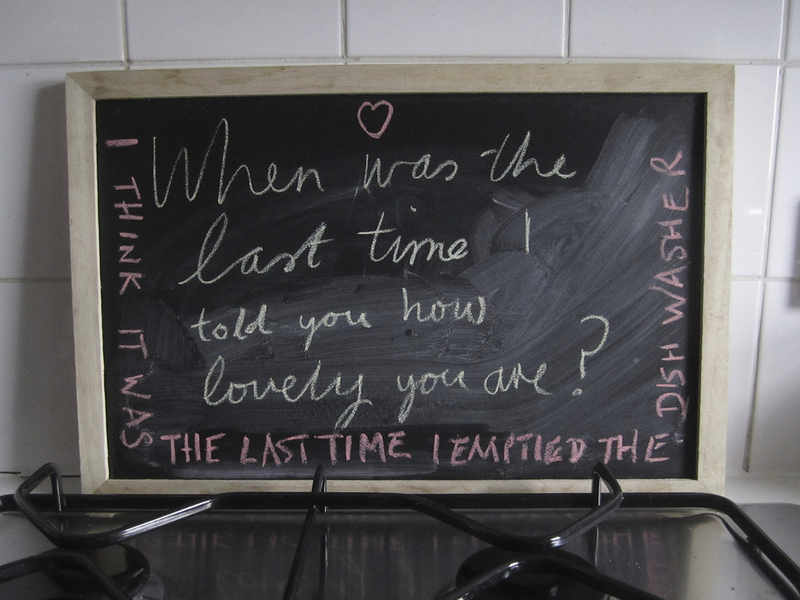 When was the
last time I
told you how
lovely you are?
I THINK IT WAS
THE LAST TIME I EMPTIED THE
DISH WASHER